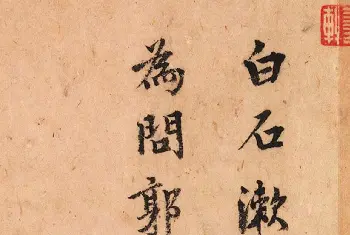 白石漱
為問郭